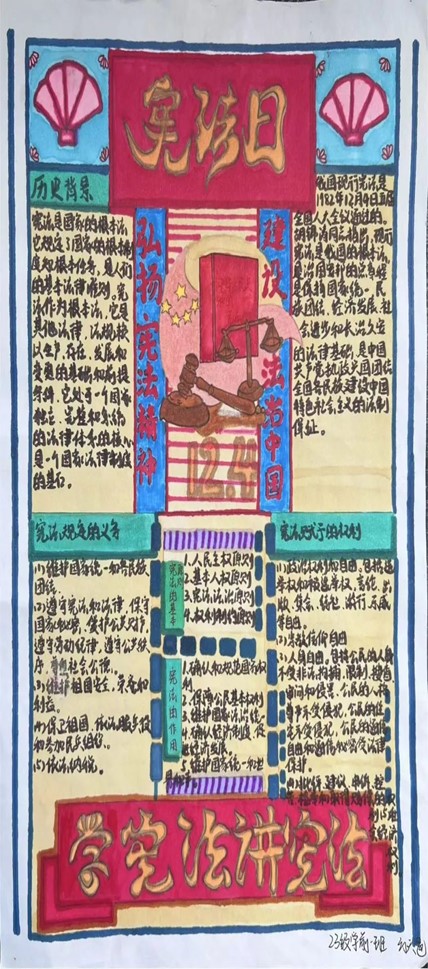 宪法日
历史背景
宪法是国家的根本法,
它规定了国家的根本制
度和根本任务,是人们
的基本法律准则,宪
法作为根本法,它是
其他法律、法规赖
以产生、存在、发展和
变更的基础和前提
条件,它处于一个国家
独立、完整和系统
的法律体系的核心
是一个国家法律制度
的基石。
弘扬宪法精神
建设法治中国
12.4
我国现行宪法是
1982年12月4日
全国人大会议通过的。
宪法是我国的根本法,
是治国安邦的总章程
是保持国家统一、民
族团结、经济发展、社
会进步和长治久安
的法律基础,是中国
共产党执政兴国团结
全国各民族建设中国
特色社会主义的法制
保证。
宪法规定的义务
(1)维护国家统一和各民族
团结。
(2)遵守宪法和法律,保守
国家秘密,爱护公共财产
遵守劳动纪律,遵守公共秩
序,尊重社会公德。
(3)维护祖国安全、荣誉和
利益。
(4)保卫祖国、依法服兵役
和参加民兵组织。
(5)依法纳税。
宪法的基本
原则
1.人民主权原则
2.基本人权原则
3.宪法法治原则
4.权利制约原则
宪法的作用
1.确认和规范国家权
利
2.保障公民基本权利
3.维护国家法治统一
4.确认经济制度,促
进经济发展
5.维护国家统一和世
界和平。
宪法赋予的权利
(1)政治权利和自由,包括选
举权和被选举权、言论、出
版、集会、结社、游行、示威
自由。
(2)宗教信仰自由
(3)人身自由,包括公民的人身
不受非法拘捕、限制、搜查
讯问和侵害,公民的人格
尊严不受侵犯,公民的住
宅不受侵犯,公民的通信
自由和通信秘密受法律
保护。
学宪法讲宪法
23级学前一班